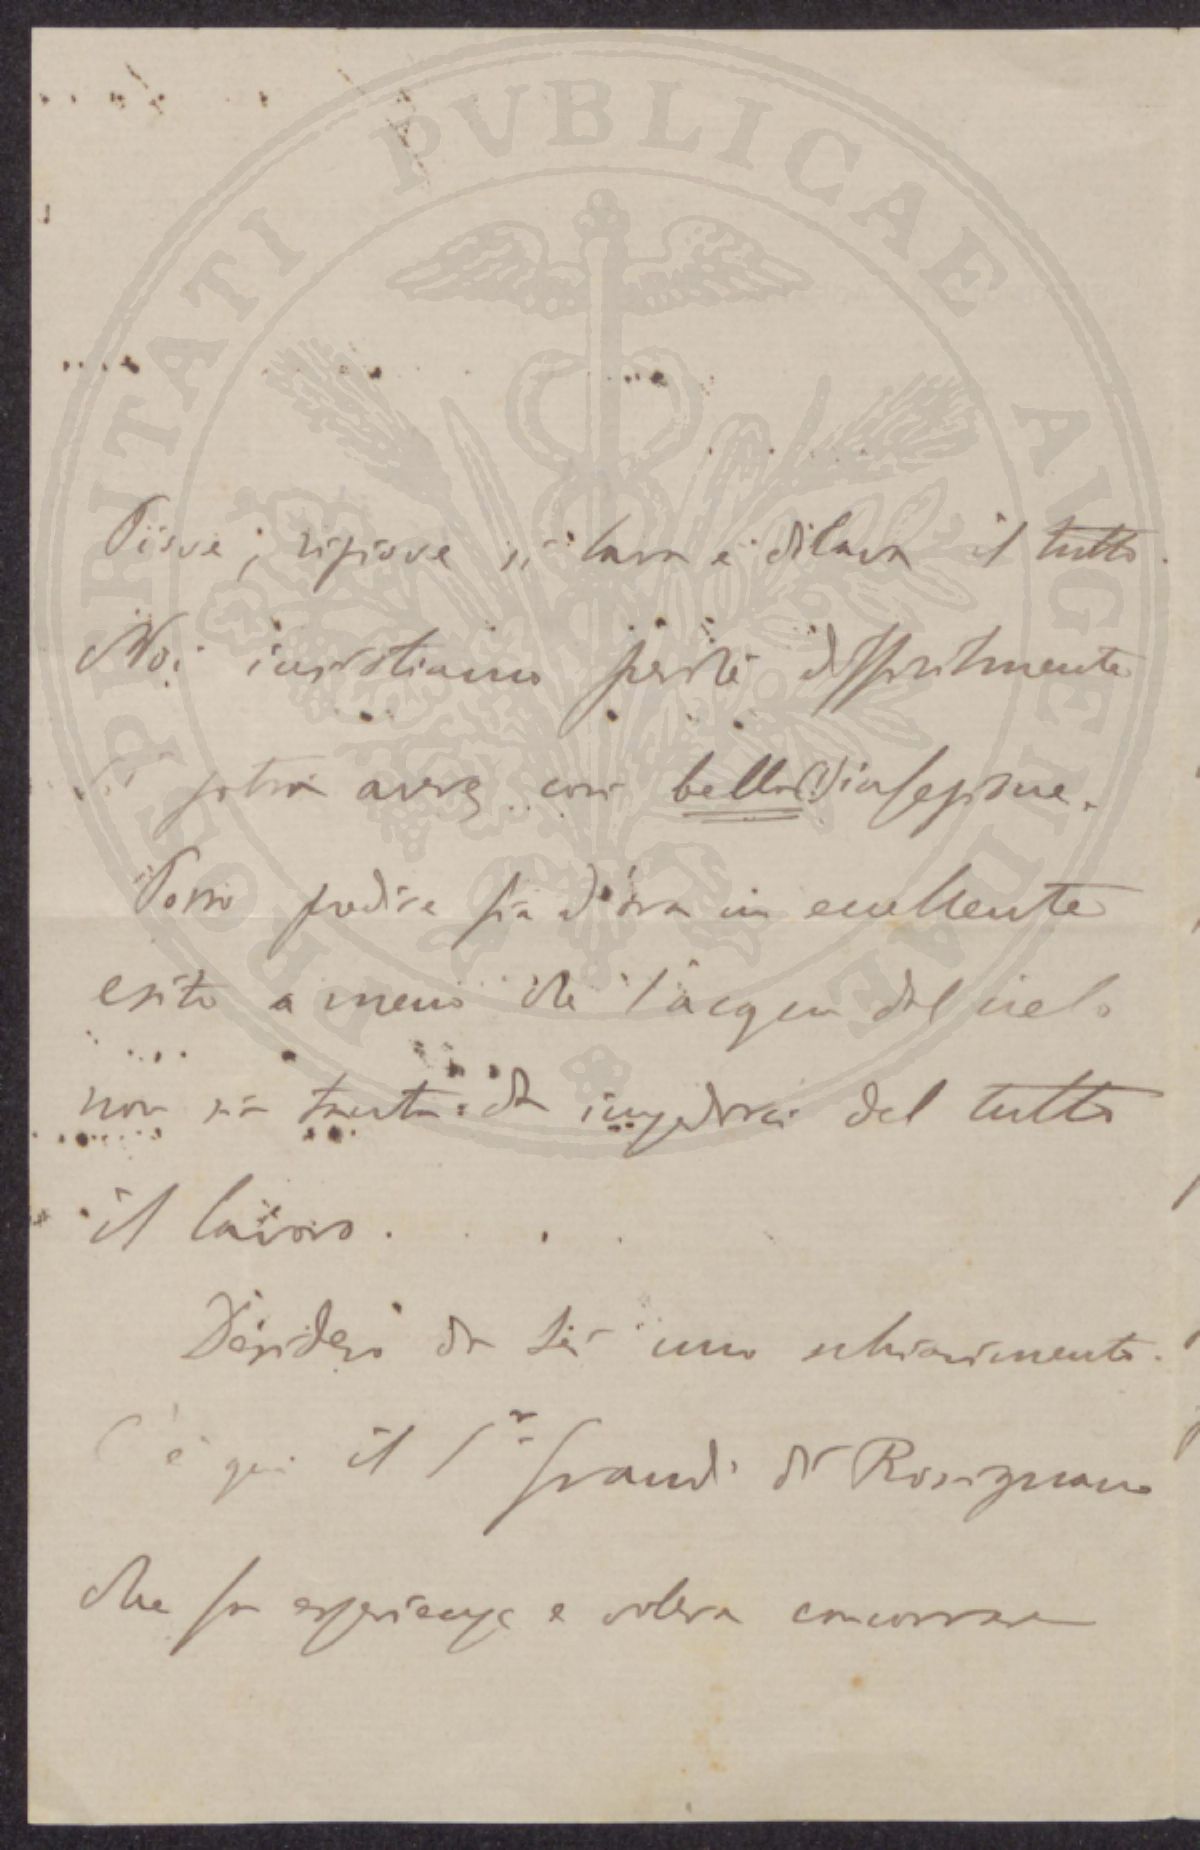 PROSPERITATI PVBLICAE AVGENDAE
Piove, ripiove si lava e dilava il tutto.
Noi insistiamo perchè difficilmente
si potrà avere così bella(!) infezione.
Posso predire fin d'ora un eccellente
esito a meno che l'acqua dal cielo
non sia tanta da impedirci del tutto
il lavoro.
Desidero da Lei uno schiarimento.
C'è qui il Sr Grandi di Rosignano
che fa esperienze e voleva concorrere